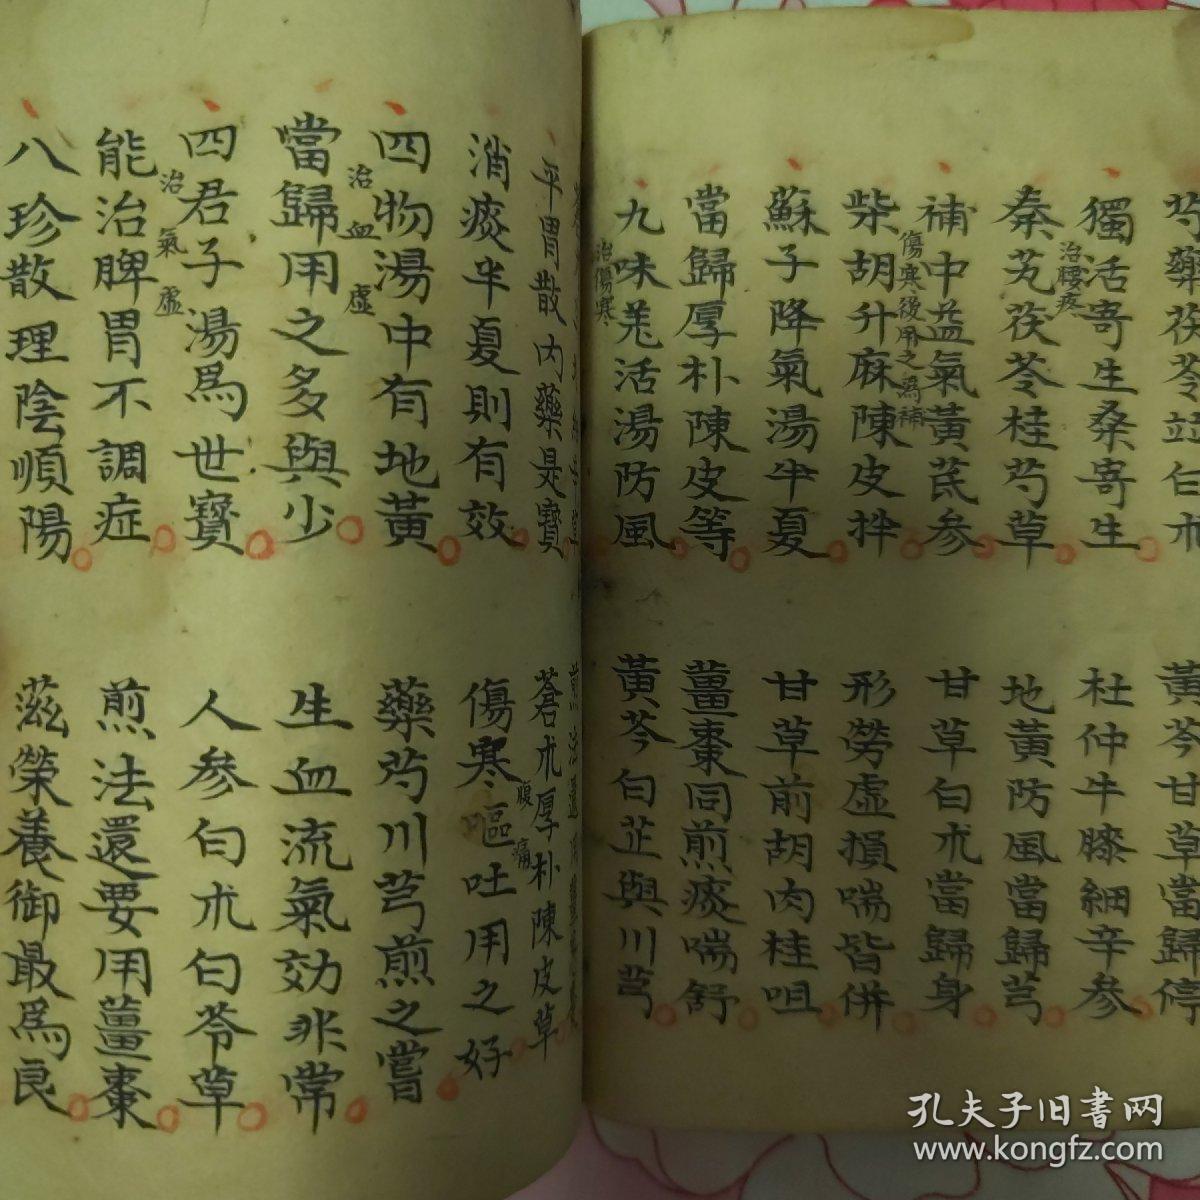 芍藥茯苓並白朮
黃芩甘草當歸停
獨活寄生桑寄生
治腰疼
杜仲牛膝細辛參
秦艽茯苓桂芍草
地黃防風當歸芎
補中益氣黃芪參
傷寒後用之為補
甘草白朮當歸身
柴胡升麻陳皮拌
形勞虛損喘皆併
蘇子降氣湯半夏
甘草前胡肉桂咀
當歸厚朴陳皮等
薑棗同煎痰喘舒
九味羌活湯防風
治傷寒
黃芩白芷與川芎
平胃散內藥是寶
蒼朮厚朴陳皮草
消痰半夏則有效
腹痛
傷寒嘔吐用之好
四物湯中有地黃
治血虛
藥芍川芎煎之嘗
當歸用之多與少
生血流氣効非常
四君子湯為世寶
治氣虛
人參白朮白苓草
能治脾胃不調症
煎法還要用薑棗
八珍散理陰順陽
滋榮養御最為良
孔夫子旧书网
www.kongfz.com